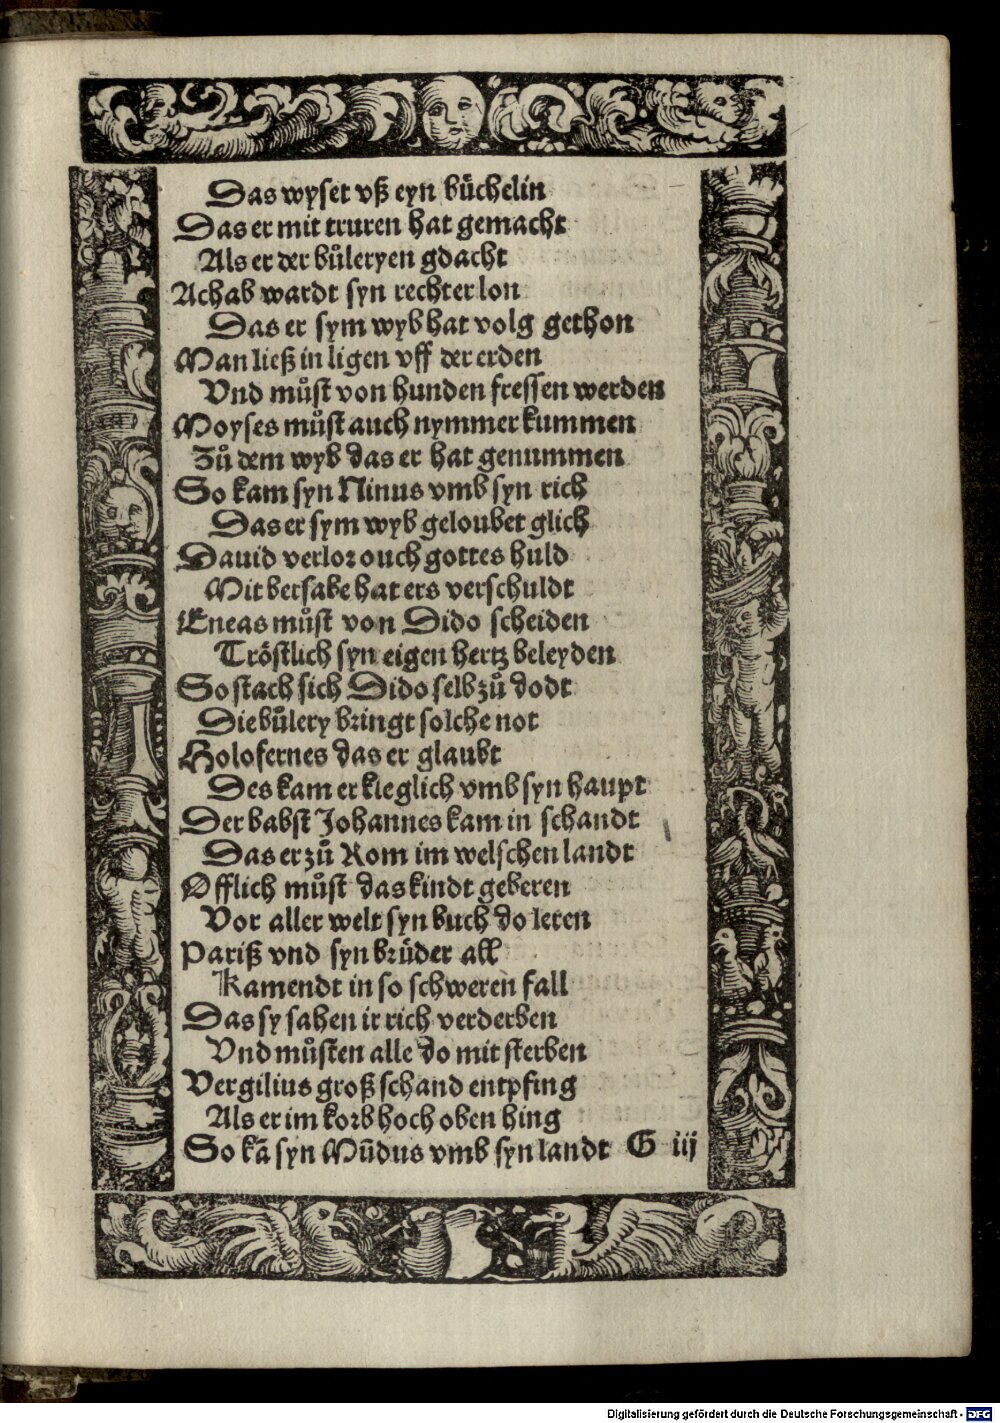 Das wyset vß eyn bůchelin
Das er mit truren hat gemacht
Als er der bůleryen gdacht
Achab wardt syn rechter lon
Das er sym wyb hat volg gethon
Man ließ in ligen vff der erden
Vnd můst von hunden fressen werden
Moyses můst auch nymmer kummen
Zů dem wyb das er hat genummen
So kam syn Ninus vmb syn rich
Das er sym wyb geloubet glich
Dauid verlor ouch gottes huld
Mit bersabe hat ers verschuldt
Eneas můst von Dido scheiden
Tröstlich syn eigen hertz beleyden
So stach sich Dido selb zů dodt
Die bůlery bringt solche not
Holofernes das er glaubt
Des kam er kleglich vmb syn haupt
Der babst Johannes kam in schandt
Das er zů Rom im welschen landt
Offlich můst das kindt geberen
Vor aller welt syn buch do leren
Pariß vnd syn brůder all
Kamendt in so schweren fall
Das sy sahen ir rich verderben
Vnd můsten alle do mit sterben
Vergilius groß schand entpfing
Als er im korb hoch oben hing
So kā syn Mūdus vmb syn landt G iij
Digitalisierung gefördert durch die Deutsche Forschungsgemeinschaft - DFG